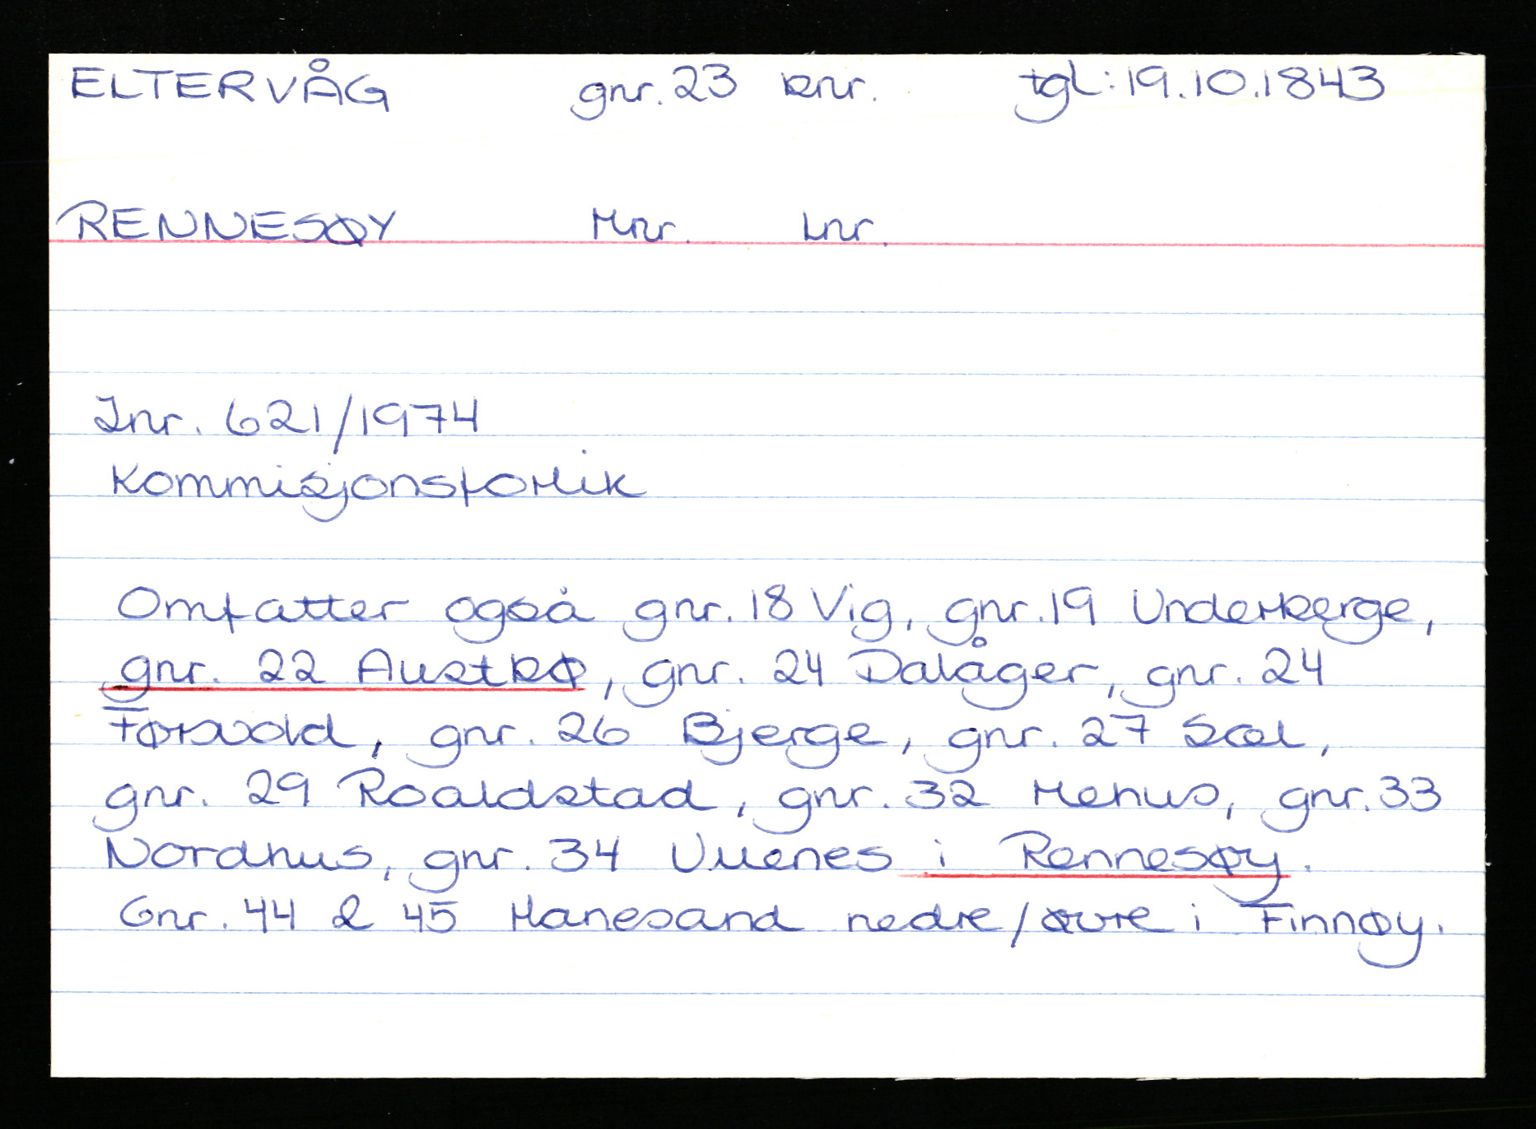 ELTERVÅG gnr. 23 bnr. tgl: 19.10.1843
RENNESØY Mnr. Lnr.
Jnr. 621/1974
Kommisjonsforlik
Omfatter også gnr. 18 Vig, gnr. 19 Underberge,
gnr. 22 Austbø, gnr. 24 Dalåger, gnr. 24
Førsvold, gnr. 26 Bjerge, gnr. 27 Sæl,
gnr. 29 Roaldstad, gnr. 32 Hehus, gnr. 33
Nordhus, gnr. 34 Vuenes i Rennesøy.
Gnr. 44 & 45 Hanesand nedre/øvre i Finnøy.